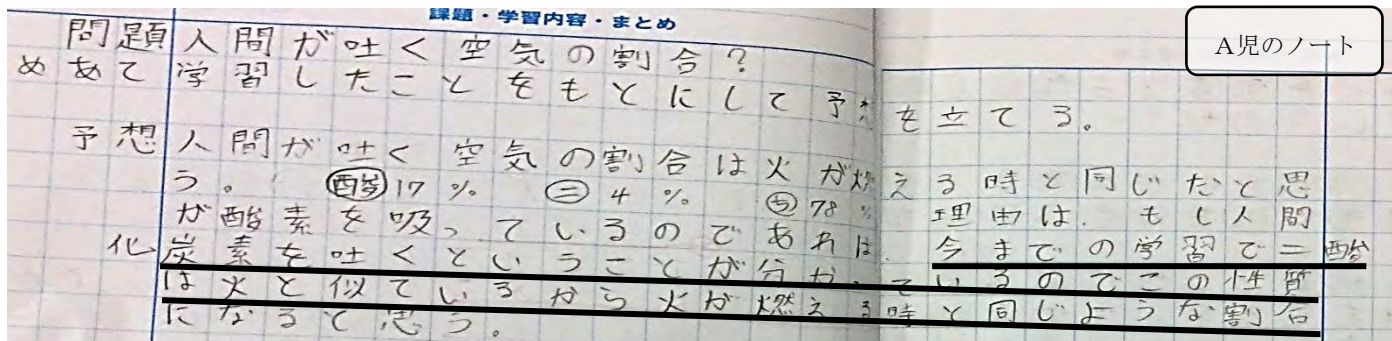 課題・学習内容・まとめ
A児のノート
問題 人間が吐く空気の割合?
めあて 学習したことをもとにして予想を立てる。
予想 人間が吐く空気の割合は火が燃える時と同じだと思
う。 酸17% 二4% ち78% 理由は、もし人間
が酸素を吸っているのであれば、今までの学習で二酸
化炭素を吐くということが分かっているのでこの性質
は火と似ているから火が燃える時と同じような割合
になると思う。